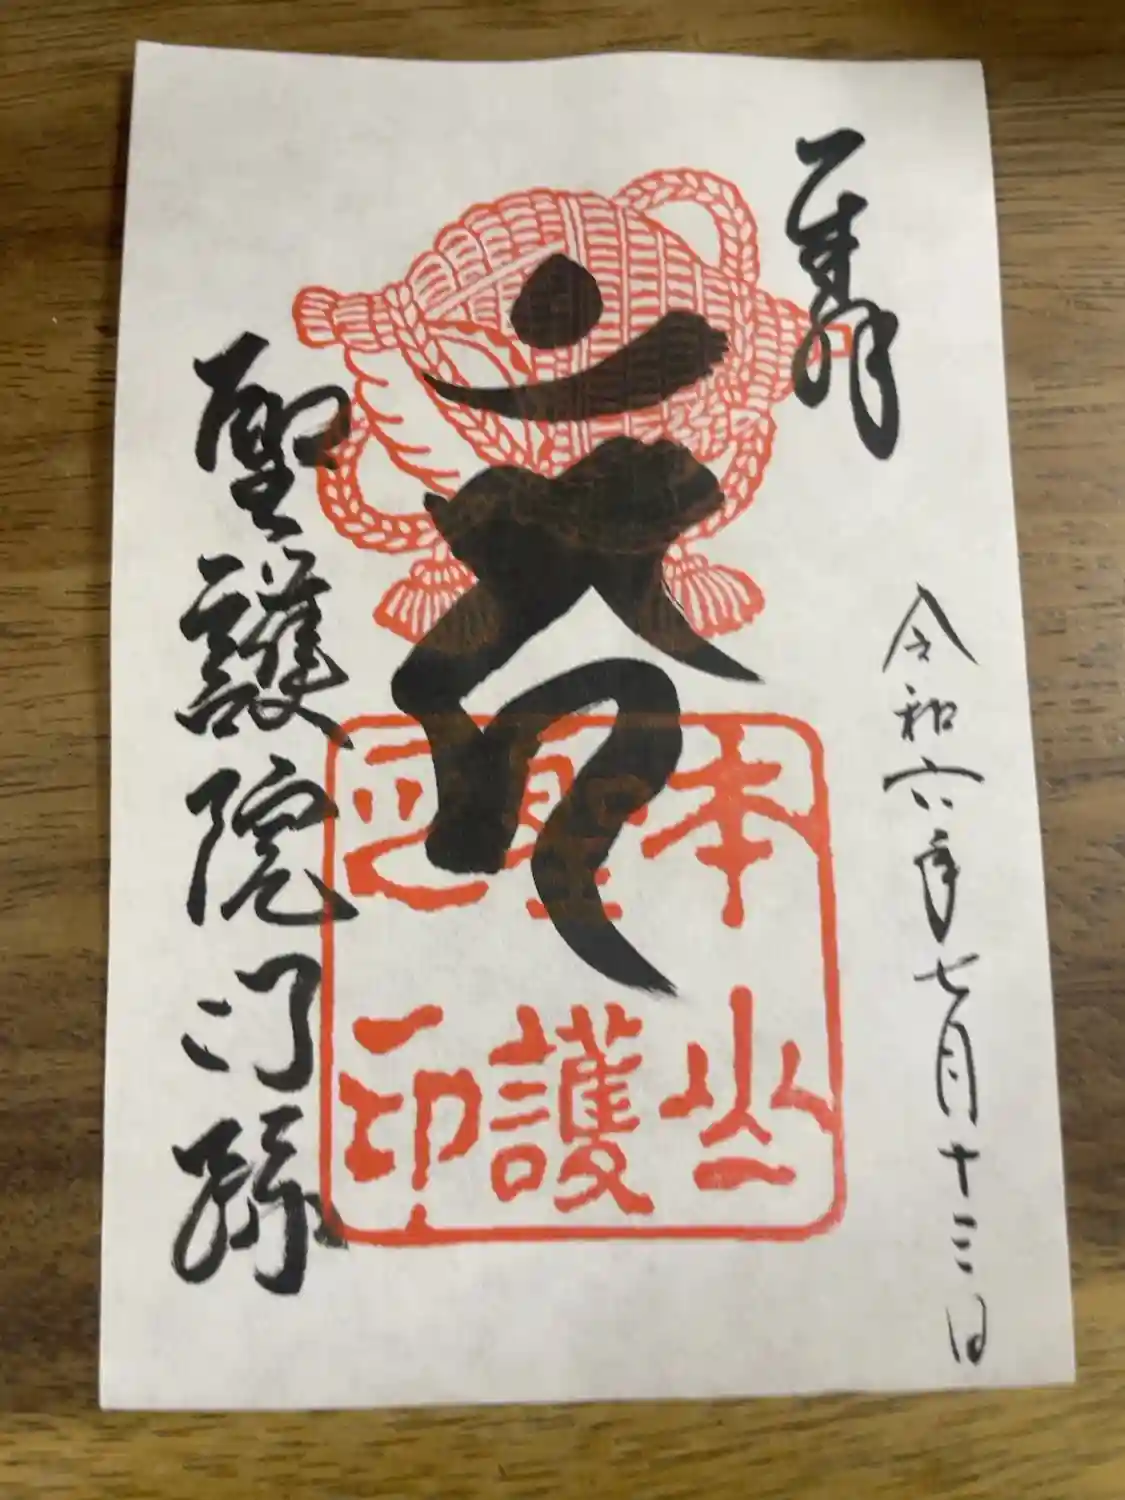 奉拝
令和六年七月十三日
本山
聖護
之印
聖護院門跡